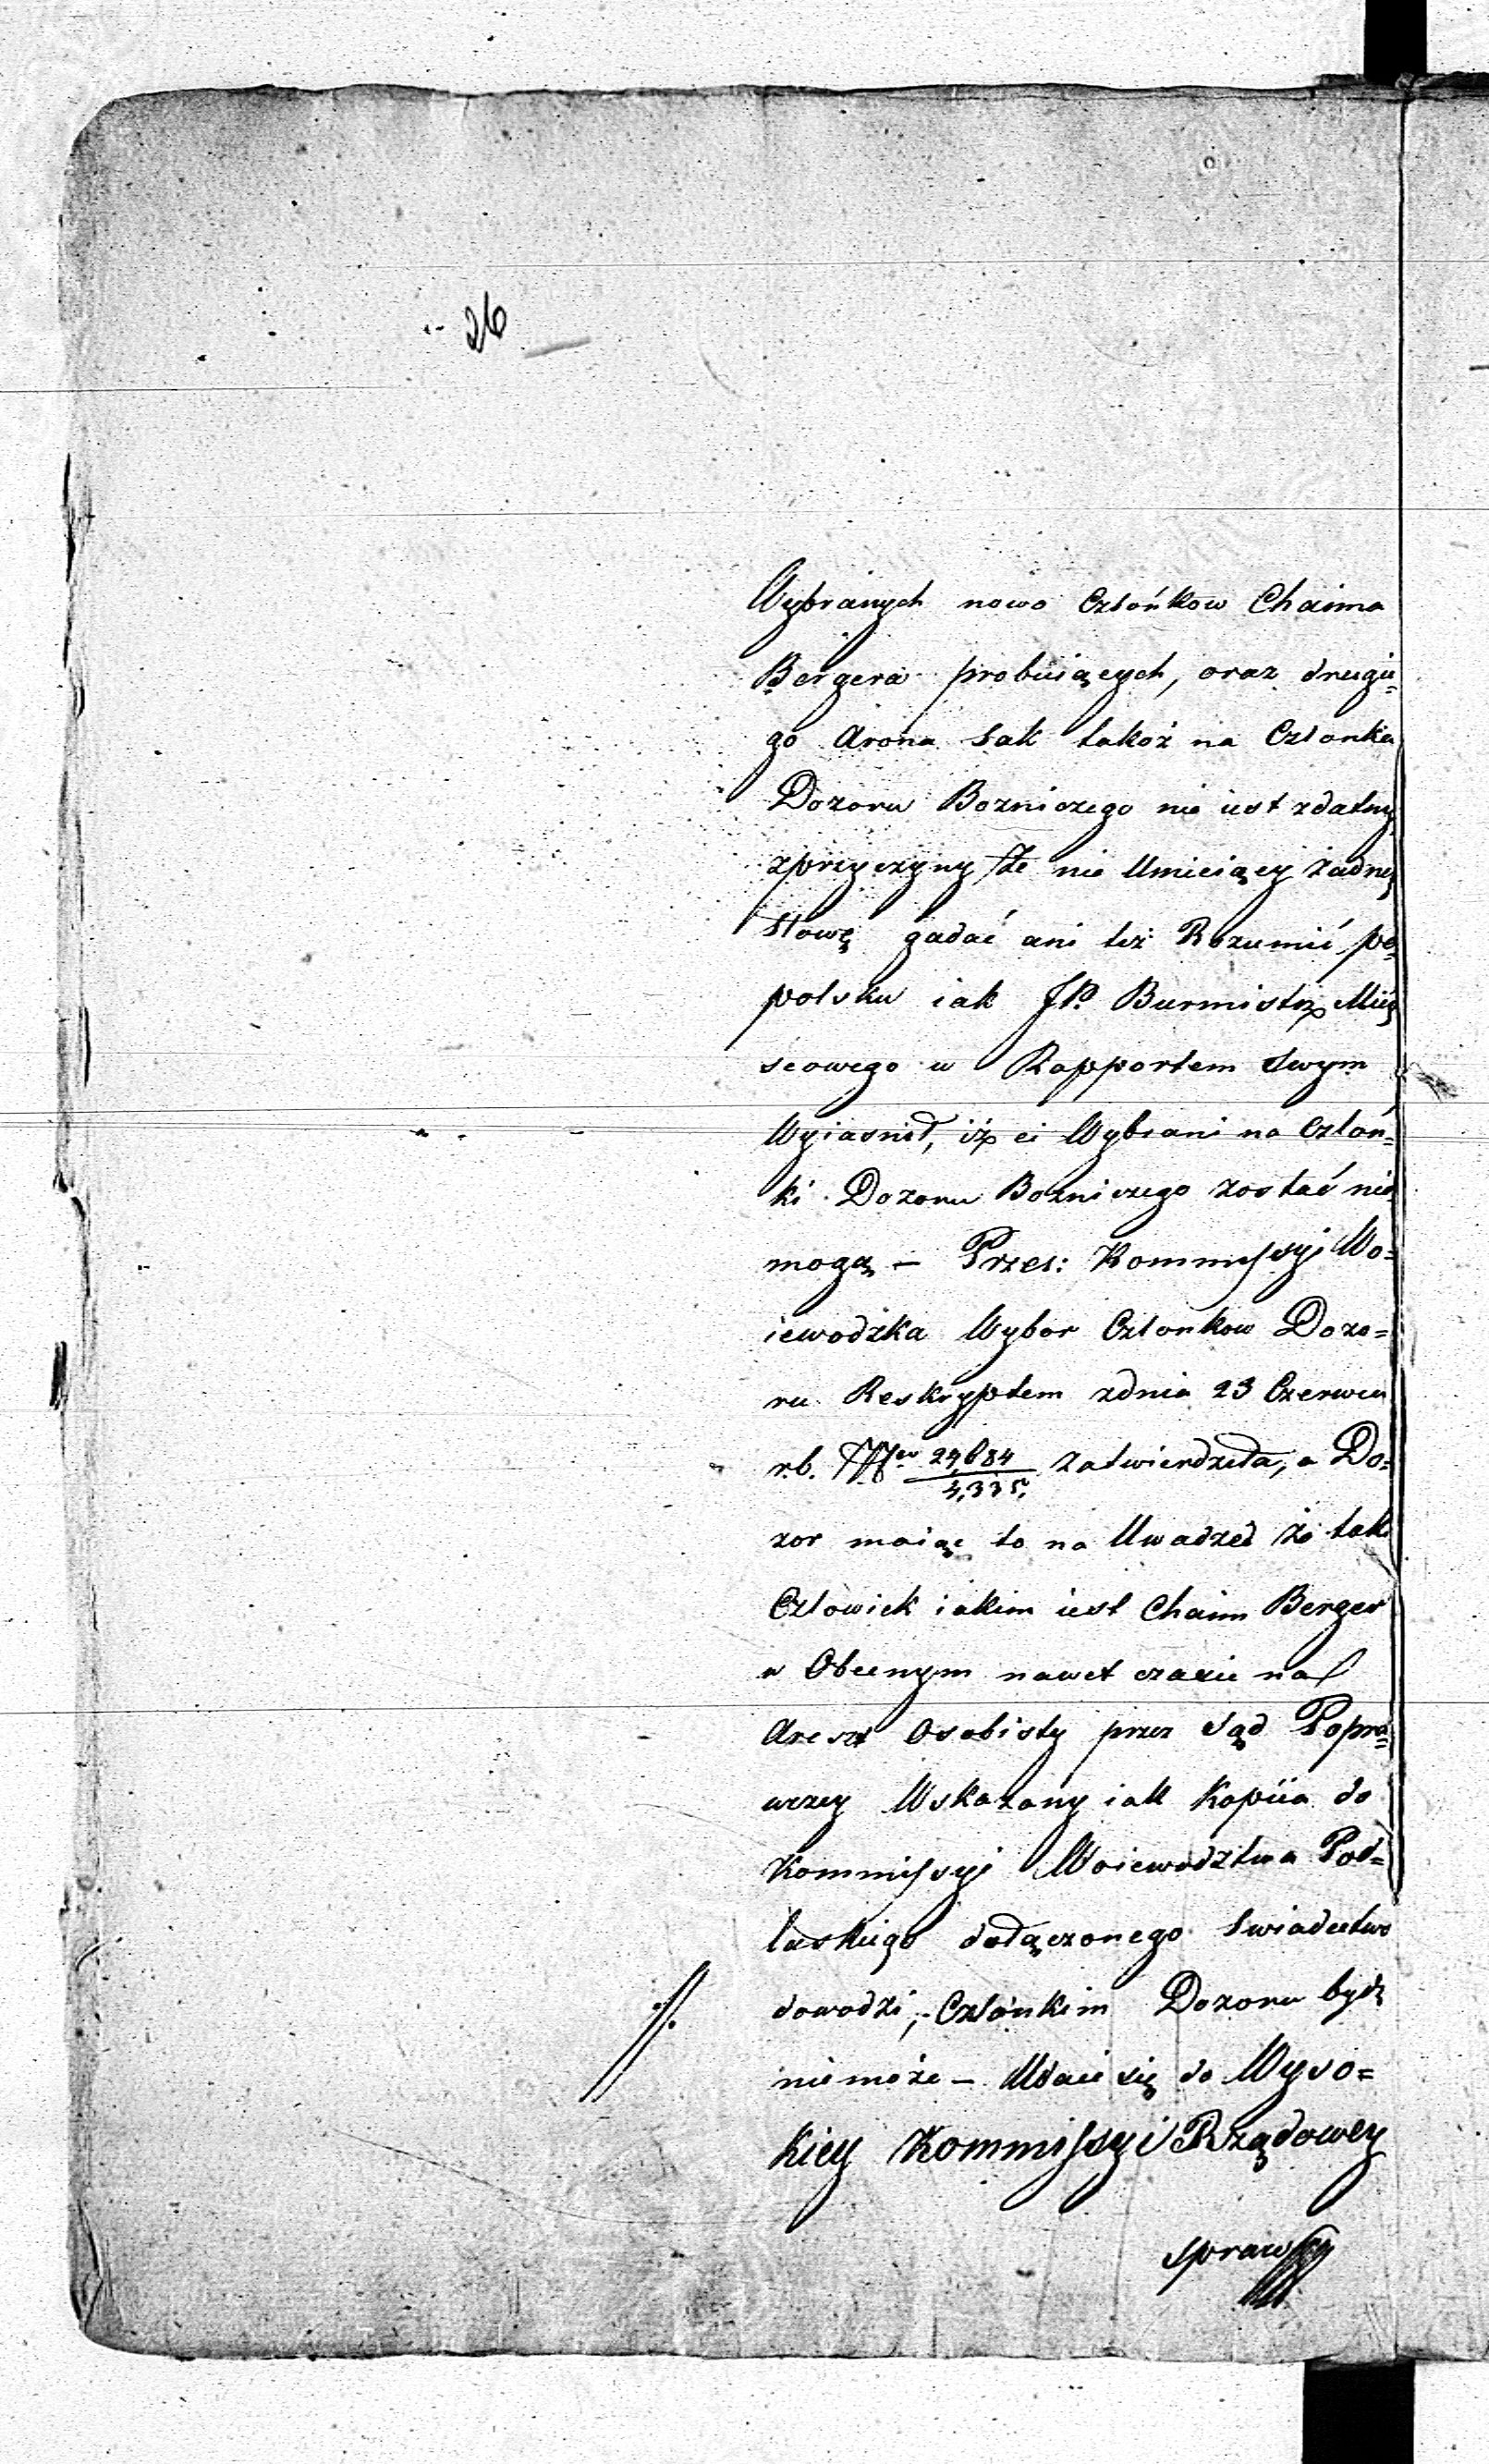 26
Wybranych nowo Człońkow Chaima
Bergera probuiących, oraz drugie=
go Arona Sak takoż na Członka
Dozoru Bozniczego nie iest zdatny
zprzyczyny Że nie Umieiący żadne
Słowę gadać ani też Rozumić po=
polsku iak JP. Burmistrz Miey
scowego w Rapportem Swym
Wyiasnił, iż ci Wybrani na Człoń=
ki Dozoru Bozniczego zostać nie
mogą – Przes: Kommissyi Wo=
iewodzka Wybor Członkow Dozo=
ru Reskryptem zdnia 23 Czerwca
r.b. 27,684
4,335. zatwierdzeła, a Do=
zor maiąc to na Uwadzed że tak
Człowiek iakim iest Chaim Berger
w Obecnym nawet czasie na
Areszt Osobisty przez Sąd Popra=
wczy Wskazany iak Kopiia do
Kommissyi Woiewodztwa Pod=
laskiego dołączonego Swiadectwo
dowodzi, Człońkim Dozoru bydz
nie może – Udaie się do Wyso=
kiey Kommissyi Rządowey
spraw